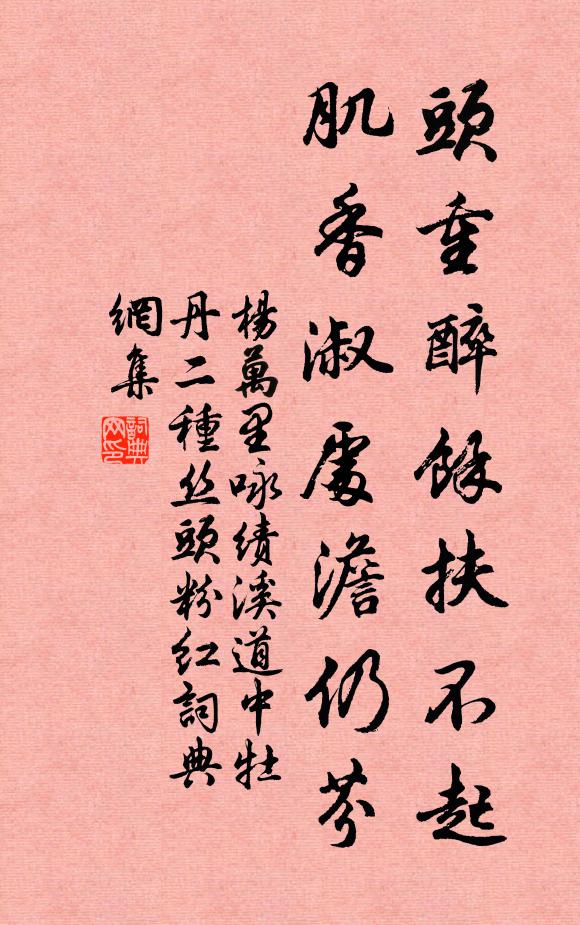 頭重醉餘扶不起
肌香淑處澹仍芬
楊萬里咏績溪道中牡
丹二種丝頭粉红詞典
網集
詞典
网印